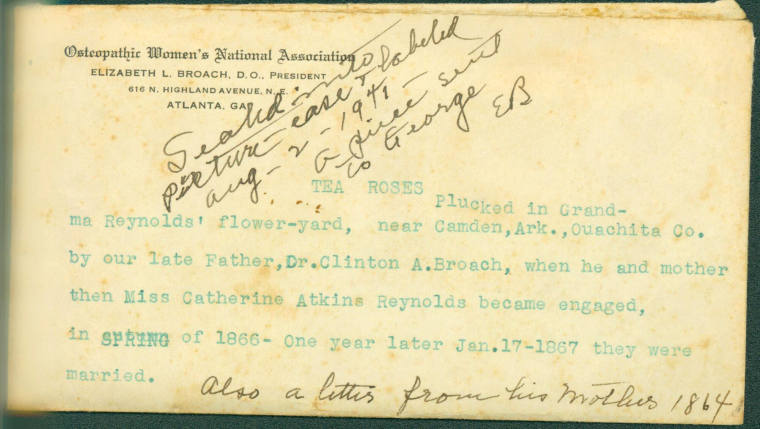 Osteopathic Women's National Association
ELIZABETH L. BROACH, D.O., PRESIDENT
616 N. HIGHLAND AVENUE, N. E.
ATLANTA, GA
Sealed into
picture case & labeled
Aug - 2 - 1941 -
a piece sent
to George EB
TEA ROSES Plucked in Grand-
ma Reynolds' flower-yard, near Camden,Ark.,Ouachita Co.
by our late Father,Dr.Clinton A.Broach, when he and mother
then Miss Catherine Atkins Reynolds became engaged,
in SPRING of 1866- One year later Jan.17-1867 they were
married.
Also a letter from his Mother 1864